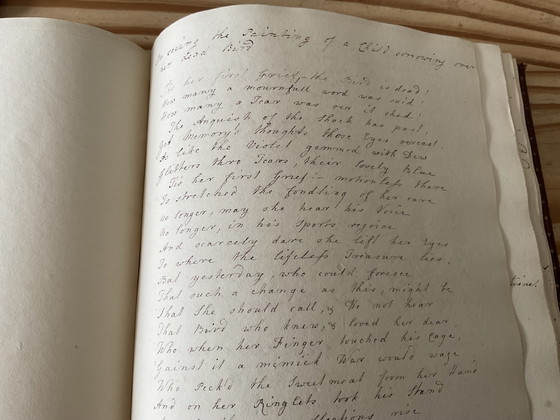 On seeing the Painting of a Child sorrowing over
her dead Bird
Tis her first Grief, the Bird is dead!
How many a mournfull word was said,
How many a Tear was oer it shed!
The Anguish of the Shock has past,
Yet Memory's Thoughts those Eyes overcast.
As like the Violet gemmed with Dew
Glitters thro Tears, their lovely blue
Tis her first Grief:- motionless there
Is stretched the fondling of her care
No longer, may she hear his Voice
No longer, in his Sports rejoice
And scarcely dare she lift her Eyes
To where the lifeless Treasure lies.
But yesterday, who could foresee
That such a change as this, might be
That She should call, & He not hear
That Bird who knew, & loved her dear
Who when her Finger touched his Cage,
Gainst it a mimick War would wage
Who Peck'd the Sweetmeat from her Hand
And on her Ringlets took his Stand
rise